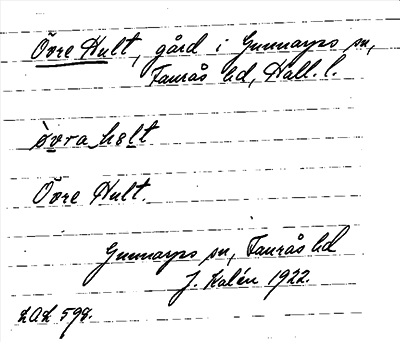 Övre Hult, gård i Gunnarps sn,
Faurås hd, Hall. l.
òvra hɵlt
Övre Hult.
Gunnarps sn, Faurås hd
J. Kalén 1922.
LAL 598.